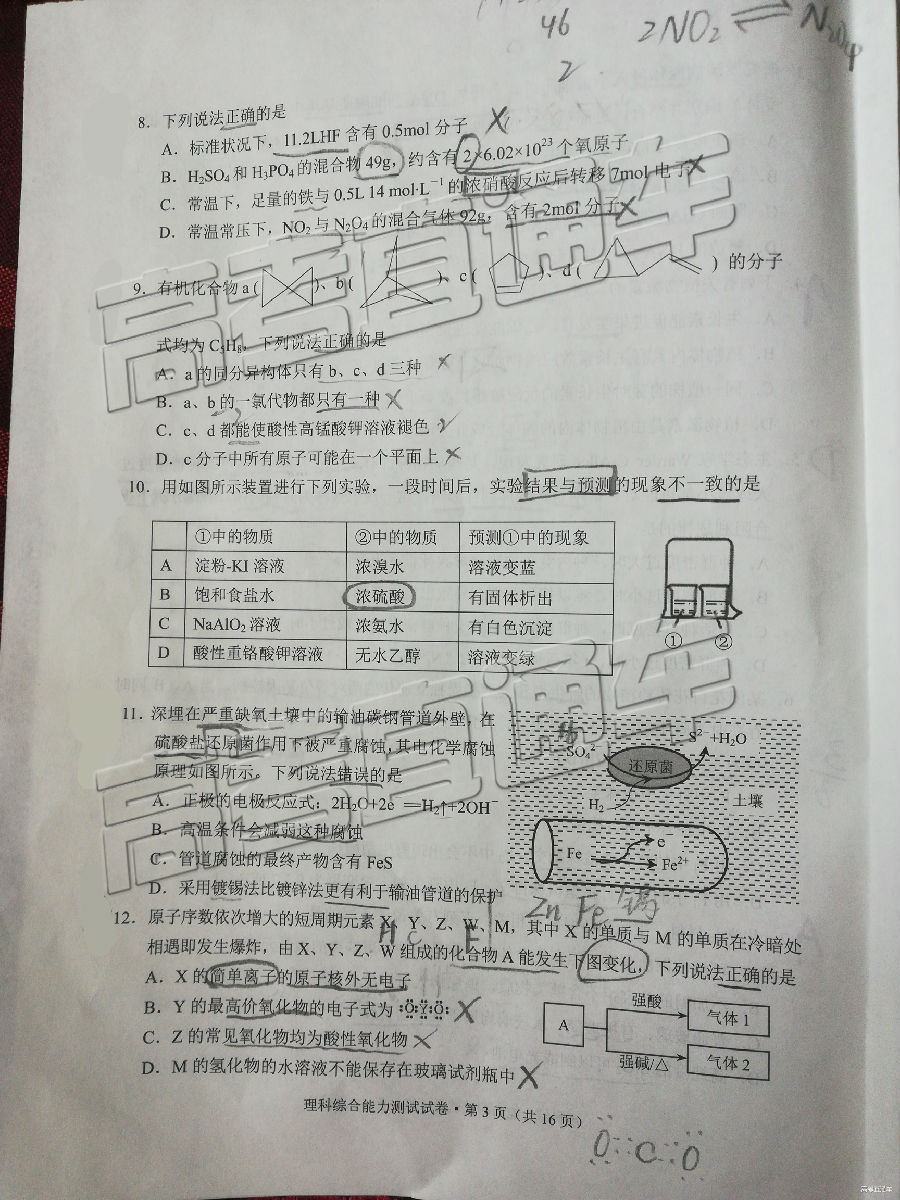 46
2
2NO₂ ⇌ N₂O₄
8. 下列说法正确的是
A. 标准状况下，11.2LHF 含有 0.5mol 分子 X
B. H₂SO₄ 和 H₃PO₄ 的混合物 49g，约含有 2×6.02×10²³ 个氧原子
C. 常温下，足量的铁与 0.5L 14 mol·L⁻¹ 的浓硝酸反应后转移 7mol 电子 X
D. 常温常压下，NO₂ 与 N₂O₄ 的混合气体 92g，含有 2mol 分子 X
9. 有机化合物 a ( )、b ( )、c ( )、d ( ) 的分子
式均为 C₅H₈，下列说法正确的是
A. a 的同分异构体只有 b、c、d 三种 X
B. a、b 的一氯代物都只有一种 X
C. c、d 都能使酸性高锰酸钾溶液褪色 √
D. c 分子中所有原子可能在一个平面上 X
10. 用如图所示装置进行下列实验，一段时间后，实验结果与预测的现象不一致的是
①中的物质 ②中的物质 预测①中的现象
A 淀粉-KI 溶液 浓溴水 溶液变蓝
B 饱和食盐水 浓硫酸 有固体析出
C NaAlO₂ 溶液 浓氨水 有白色沉淀
D 酸性重铬酸钾溶液 无水乙醇 溶液变绿
① ②
11. 深埋在严重缺氧土壤中的输油碳钢管道外壁，在
硫酸盐还原菌作用下被严重腐蚀，其电化学腐蚀
原理如图所示。下列说法错误的是
A. 正极的电极反应式：2H₂O+2e⁻═H₂↑+2OH⁻
B. 高温条件会减弱这种腐蚀
C. 管道腐蚀的最终产物含有 FeS
D. 采用镀锡法比镀锌法更有利于输油管道的保护
SO₄²⁻
S²⁻+H₂O
还原菌
H₂
土壤
Fe
e⁻
Fe²⁺
Zn Fe 锡
12. 原子序数依次增大的短周期元素 X、Y、Z、W、M，其中 X 的单质与 M 的单质在冷暗处
H C F
相遇即发生爆炸，由 X、Y、Z、W 组成的化合物 A 能发生下图变化，下列说法正确的是
A. X 的简单离子的原子核外无电子
B. Y 的最高价氧化物的电子式为 :Ö:Y:Ö: X
C. Z 的常见氧化物均为酸性氧化物 X
D. M 的氢化物的水溶液不能保存在玻璃试剂瓶中 X
A
强酸
气体 1
强碱/△
气体 2
理科综合能力测试试卷·第 3 页（共 16 页）
O::C::O
高考直通车
高考直通车